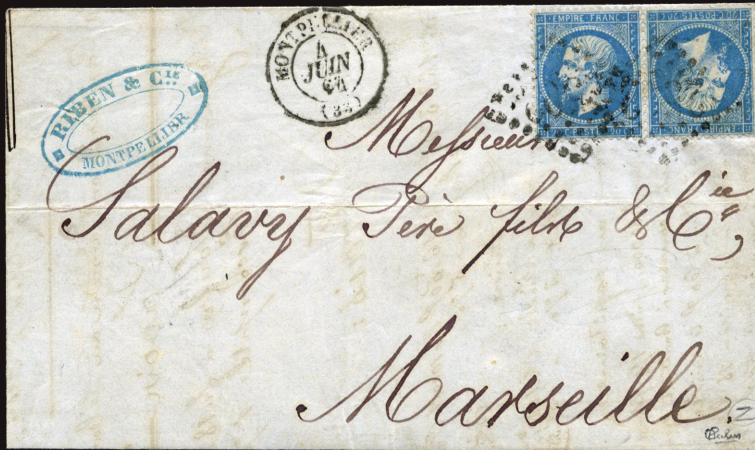 RIBEN & Cie
MONTPELLIER
MONTPELLIER
4
JUIN
64
(33)
EMPIRE FRANC
EMPIRE FRANC
Messieurs
Salavy Père fils & Cie,
Marseille